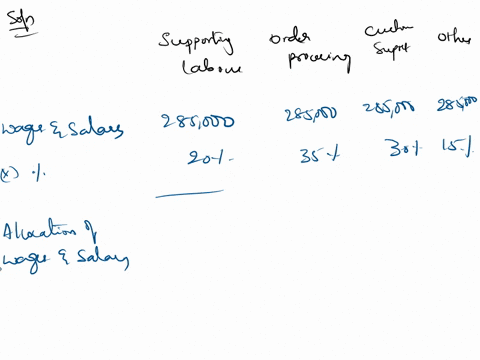 Soln
Supporting labour Order processing Custom Suprt Other
Wage & Salary 285,000 285,000 285,000 285,000
(x) % 20% 35% 30% 15%
Allocation of
Wage & Salary